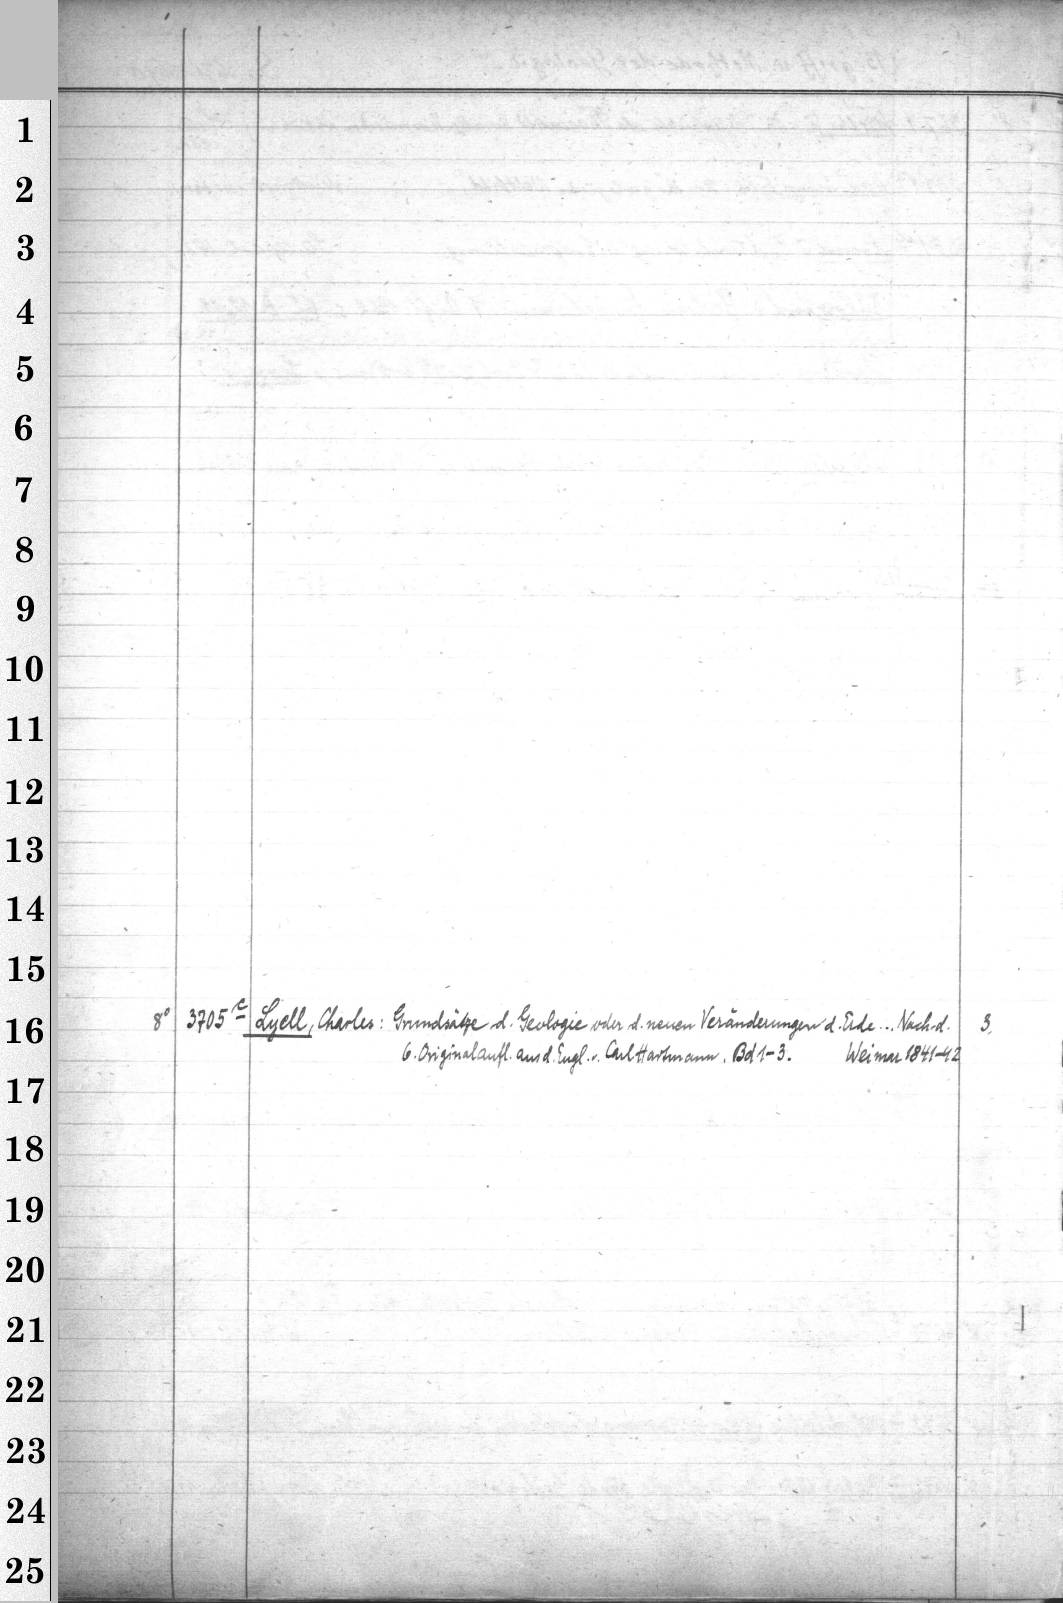 1
2
3
4
5
6
7
8
9
10
11
12
13
14
15
8° 3705 c Lyell, Charles: Grundsätze d. Geologie oder d. neuen Veränderungen d. Erde... Nach d. 3
16
6. Originalaufl. aus d. Engl. v. Carl Hartmann. Bd 1-3. Weimar 1841-42
17
18
19
20
21
22
23
24
25